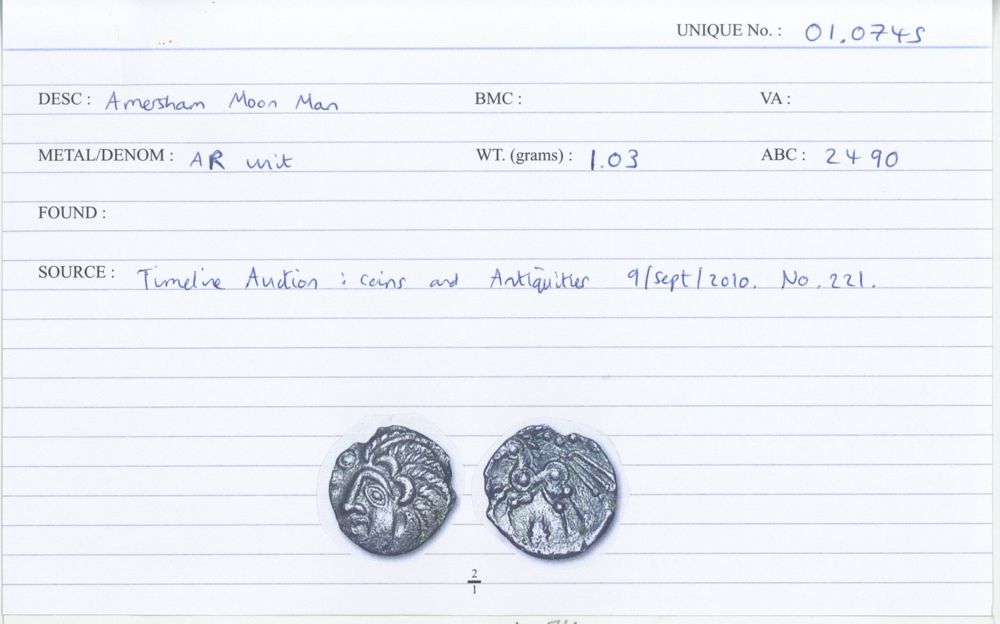 UNIQUE No. : 01.0745
DESC : Amersham Moon Man BMC : VA :
METAL/DENOM : AR unit WT. (grams) : 1.03 ABC : 2490
FOUND :
SOURCE : Timeline Auction : Coins and Antiquities 9/Sept/2010. No. 221.
2
1